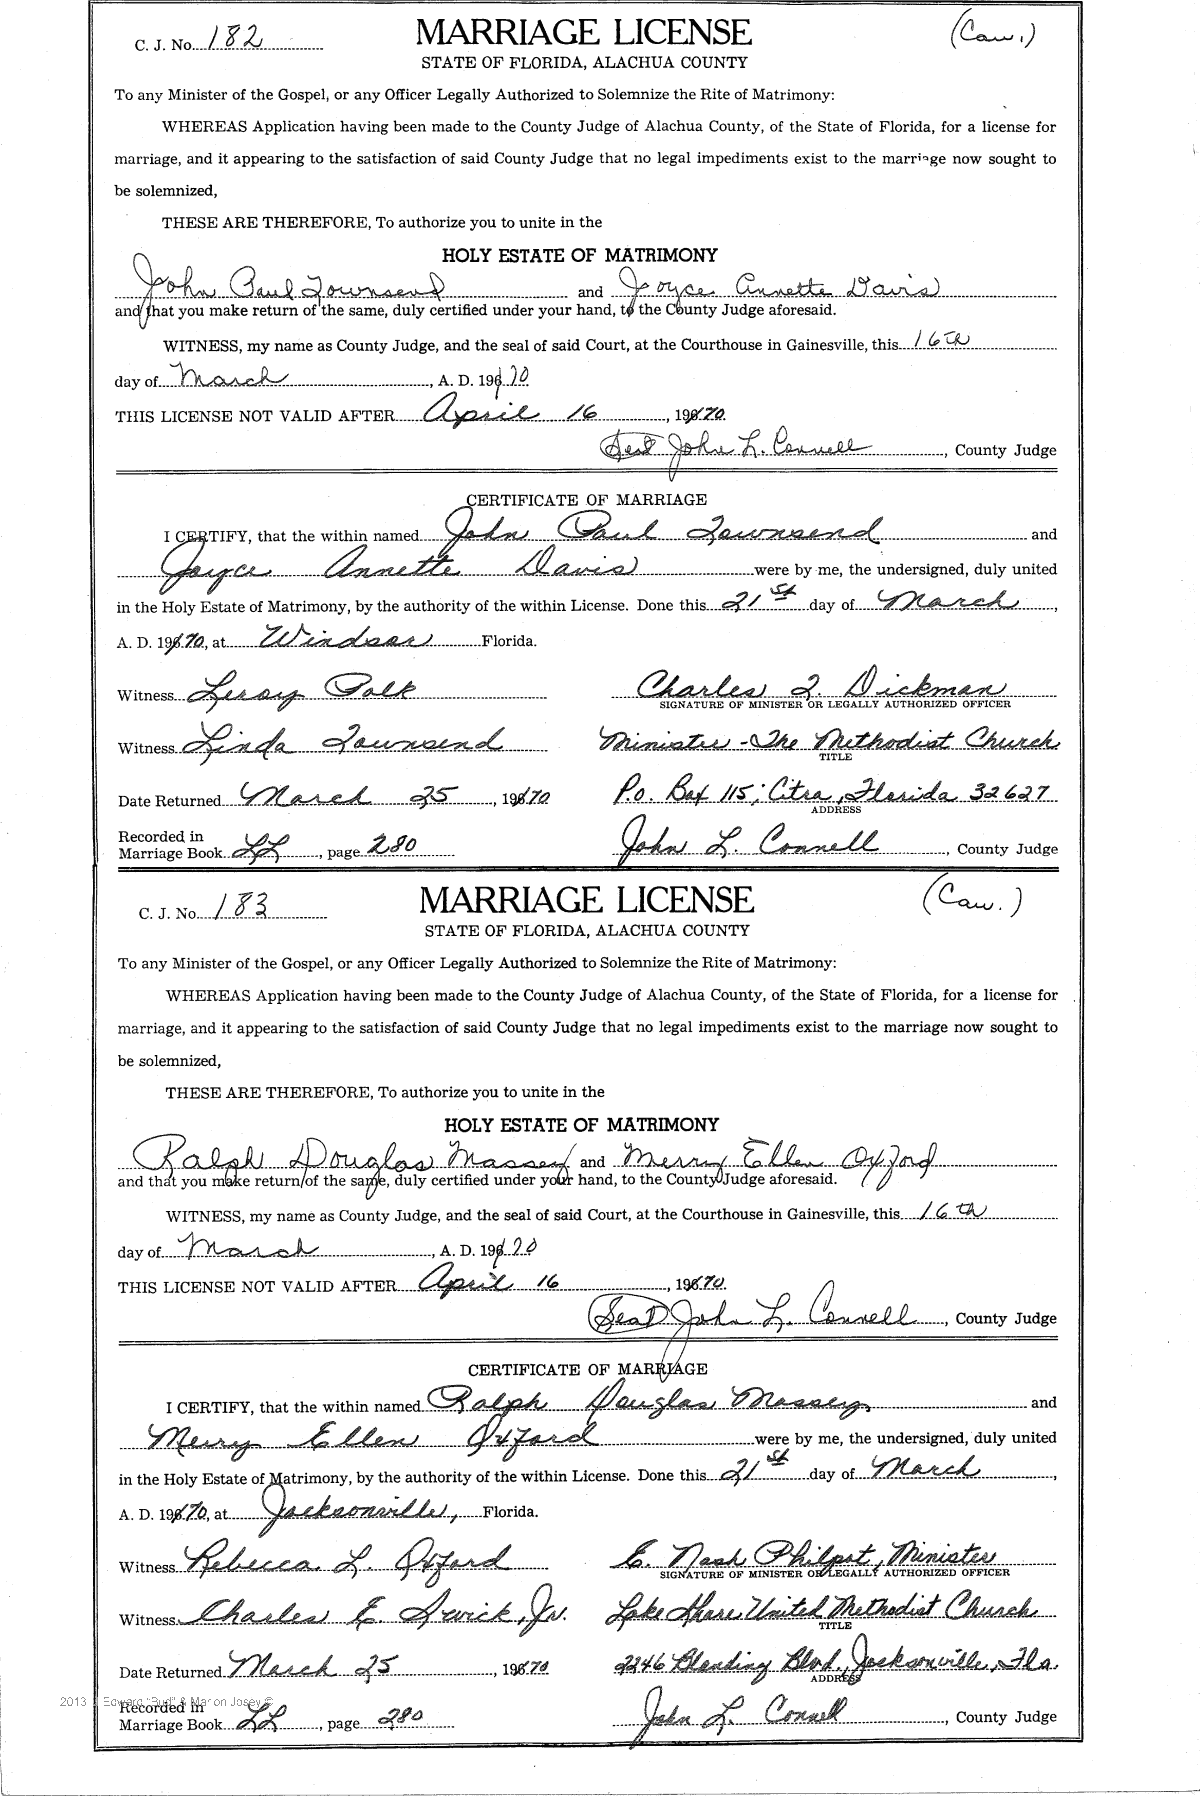 C. J. No. 182 MARRIAGE LICENSE (Cau.)
STATE OF FLORIDA, ALACHUA COUNTY
To any Minister of the Gospel, or any Officer Legally Authorized to Solemnize the Rite of Matrimony:
WHEREAS Application having been made to the County Judge of Alachua County, of the State of Florida, for a license for
marriage, and it appearing to the satisfaction of said County Judge that no legal impediments exist to the marriage now sought to
be solemnized,
THESE ARE THEREFORE, To authorize you to unite in the
HOLY ESTATE OF MATRIMONY
John Paul Townsend and Joyce Annette Davis
and that you make return of the same, duly certified under your hand, to the County Judge aforesaid.
WITNESS, my name as County Judge, and the seal of said Court, at the Courthouse in Gainesville, this 16th
day of March, A. D. 1970
THIS LICENSE NOT VALID AFTER April 16, 1970.
(Seal) John L. Connell, County Judge
CERTIFICATE OF MARRIAGE
I CERTIFY, that the within named John Paul Townsend and
Joyce Annette Davis were by me, the undersigned, duly united
in the Holy Estate of Matrimony, by the authority of the within License. Done this 21st day of March,
A. D. 1970, at Windsor Florida.
Witness Leroy Polk Charles I. Dickman
SIGNATURE OF MINISTER OR LEGALLY AUTHORIZED OFFICER
Witness Linda Townsend Minister - The Methodist Church
TITLE
Date Returned March 25, 1970 P.O. Box 115; Citra, Florida 32627
ADDRESS
Recorded in
Marriage Book LL, page 280 John L. Connell, County Judge
C. J. No. 183 MARRIAGE LICENSE (Cau.)
STATE OF FLORIDA, ALACHUA COUNTY
To any Minister of the Gospel, or any Officer Legally Authorized to Solemnize the Rite of Matrimony:
WHEREAS Application having been made to the County Judge of Alachua County, of the State of Florida, for a license for
marriage, and it appearing to the satisfaction of said County Judge that no legal impediments exist to the marriage now sought to
be solemnized,
THESE ARE THEREFORE, To authorize you to unite in the
HOLY ESTATE OF MATRIMONY
Ralph Douglas Massey and Merry Ellen Oxford
and that you make return of the same, duly certified under your hand, to the County Judge aforesaid.
WITNESS, my name as County Judge, and the seal of said Court, at the Courthouse in Gainesville, this 16th
day of March, A. D. 1970
THIS LICENSE NOT VALID AFTER April 16, 1970.
(Seal) John L. Connell, County Judge
CERTIFICATE OF MARRIAGE
I CERTIFY, that the within named Ralph Douglas Massey, and
Merry Ellen Oxford were by me, the undersigned, duly united
in the Holy Estate of Matrimony, by the authority of the within License. Done this 21st day of March,
A. D. 1970, at Jacksonville, Florida.
Witness Rebecca L. Oxford E. Nash Philpot, Minister
SIGNATURE OF MINISTER OR LEGALLY AUTHORIZED OFFICER
Witness Charles E. Swick, Jr. Lake Shore United Methodist Church
TITLE
Date Returned March 25, 1970 2246 Blanding Blvd., Jacksonville, Fla.
ADDRESS
2013 Edward "Bud" & Marion Josey ©
Recorded in
Marriage Book LL, page 280 John L. Connell, County Judge